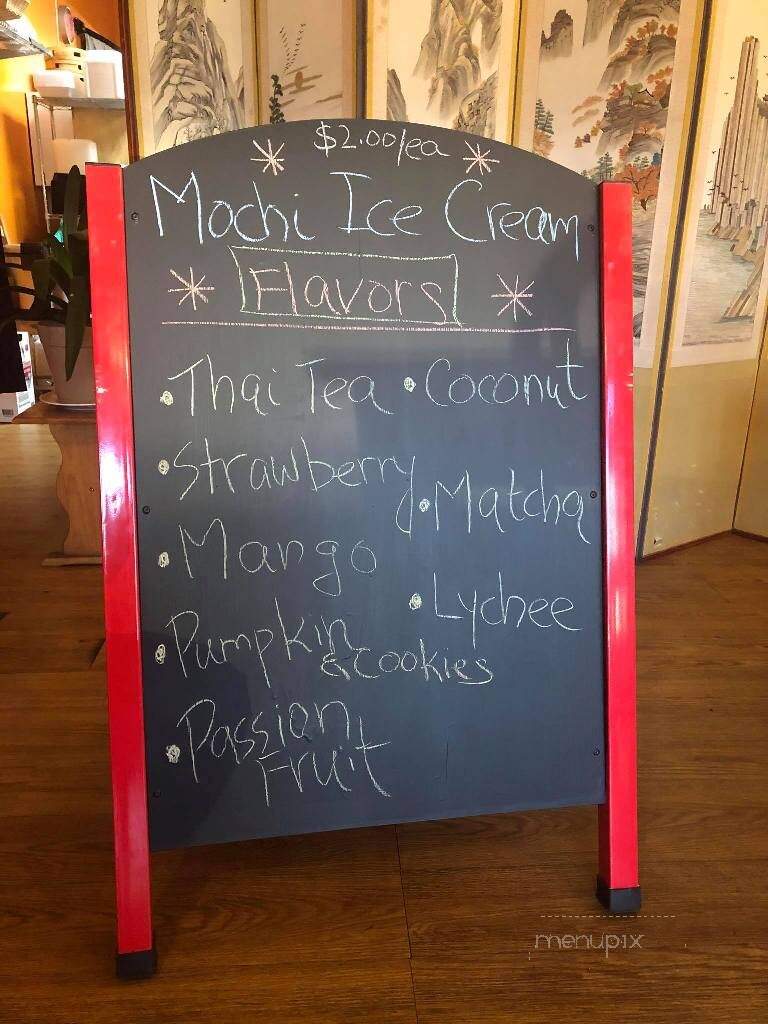 $2.00/ea
Mochi Ice Cream
Flavors
Thai Tea
Strawberry
Mango
Pumpkin
& cookies
Passion
Fruit
Coconut
Matcha
Lychee
menupix